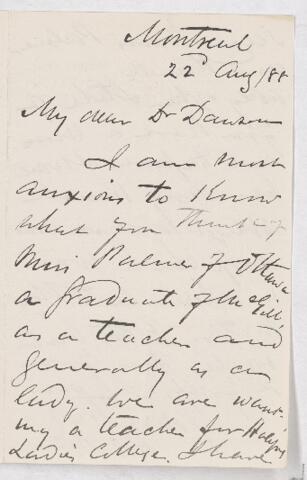 Montreal
22d Aug/88
My dear Dr Dawson
I am most
anxious to know
what you think of
Miss Palmer of Ottawa
a graduate of McGill,
as a teacher and
generally as a
lady. We are want-
ing a teacher for Halifax
Ladies College. I have